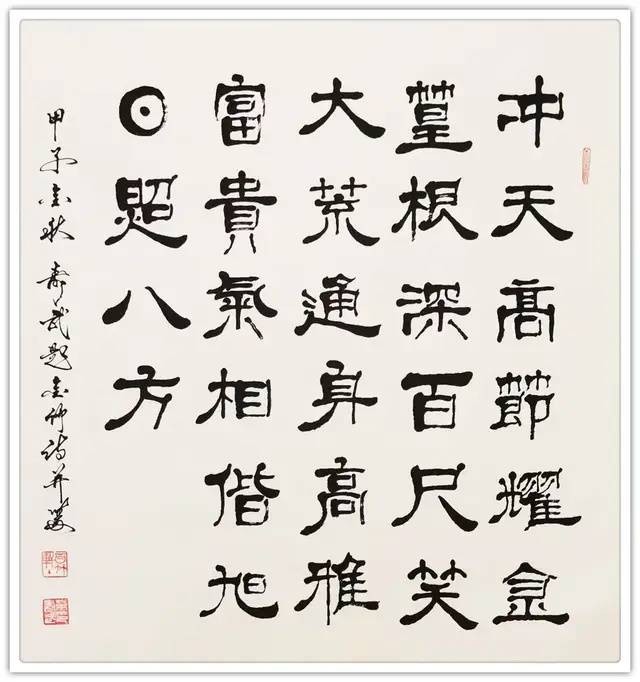 冲天髙節耀金
篁根深百尺笑
大荒通身高雅
富貴氣相偕旭
日照八方
甲金秋武題金竹詩并書